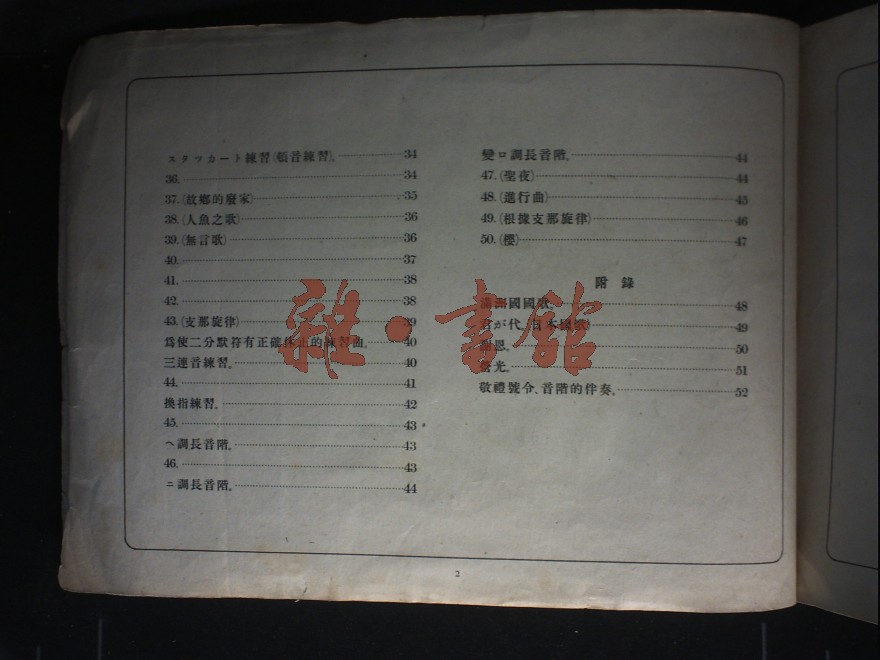 スタッカート練習(頓音練習)。 34
36. 34
37. (故鄉的廢家) 35
38. (人魚之歌) 36
39. (無言歌) 36
40. 37
41. 38
42. 38
43. (支那旋律) 39
爲使二分默符有正確休止的練習曲。 40
三連音練習。 40
44. 41
換指練習。 42
45. 43
ヘ調長音階。 43
46. 43
ニ調長音階。 44
變ロ調長音階。 44
47. (聖夜) 44
48. (進行曲) 45
49. (根據支那旋律) 46
50. (櫻) 47
附錄
滿洲國國歌。 48
君が代、(日本國歌) 49
恩。 50
光。 51
敬禮號令、音階的伴奏。 52
雜·書館
2